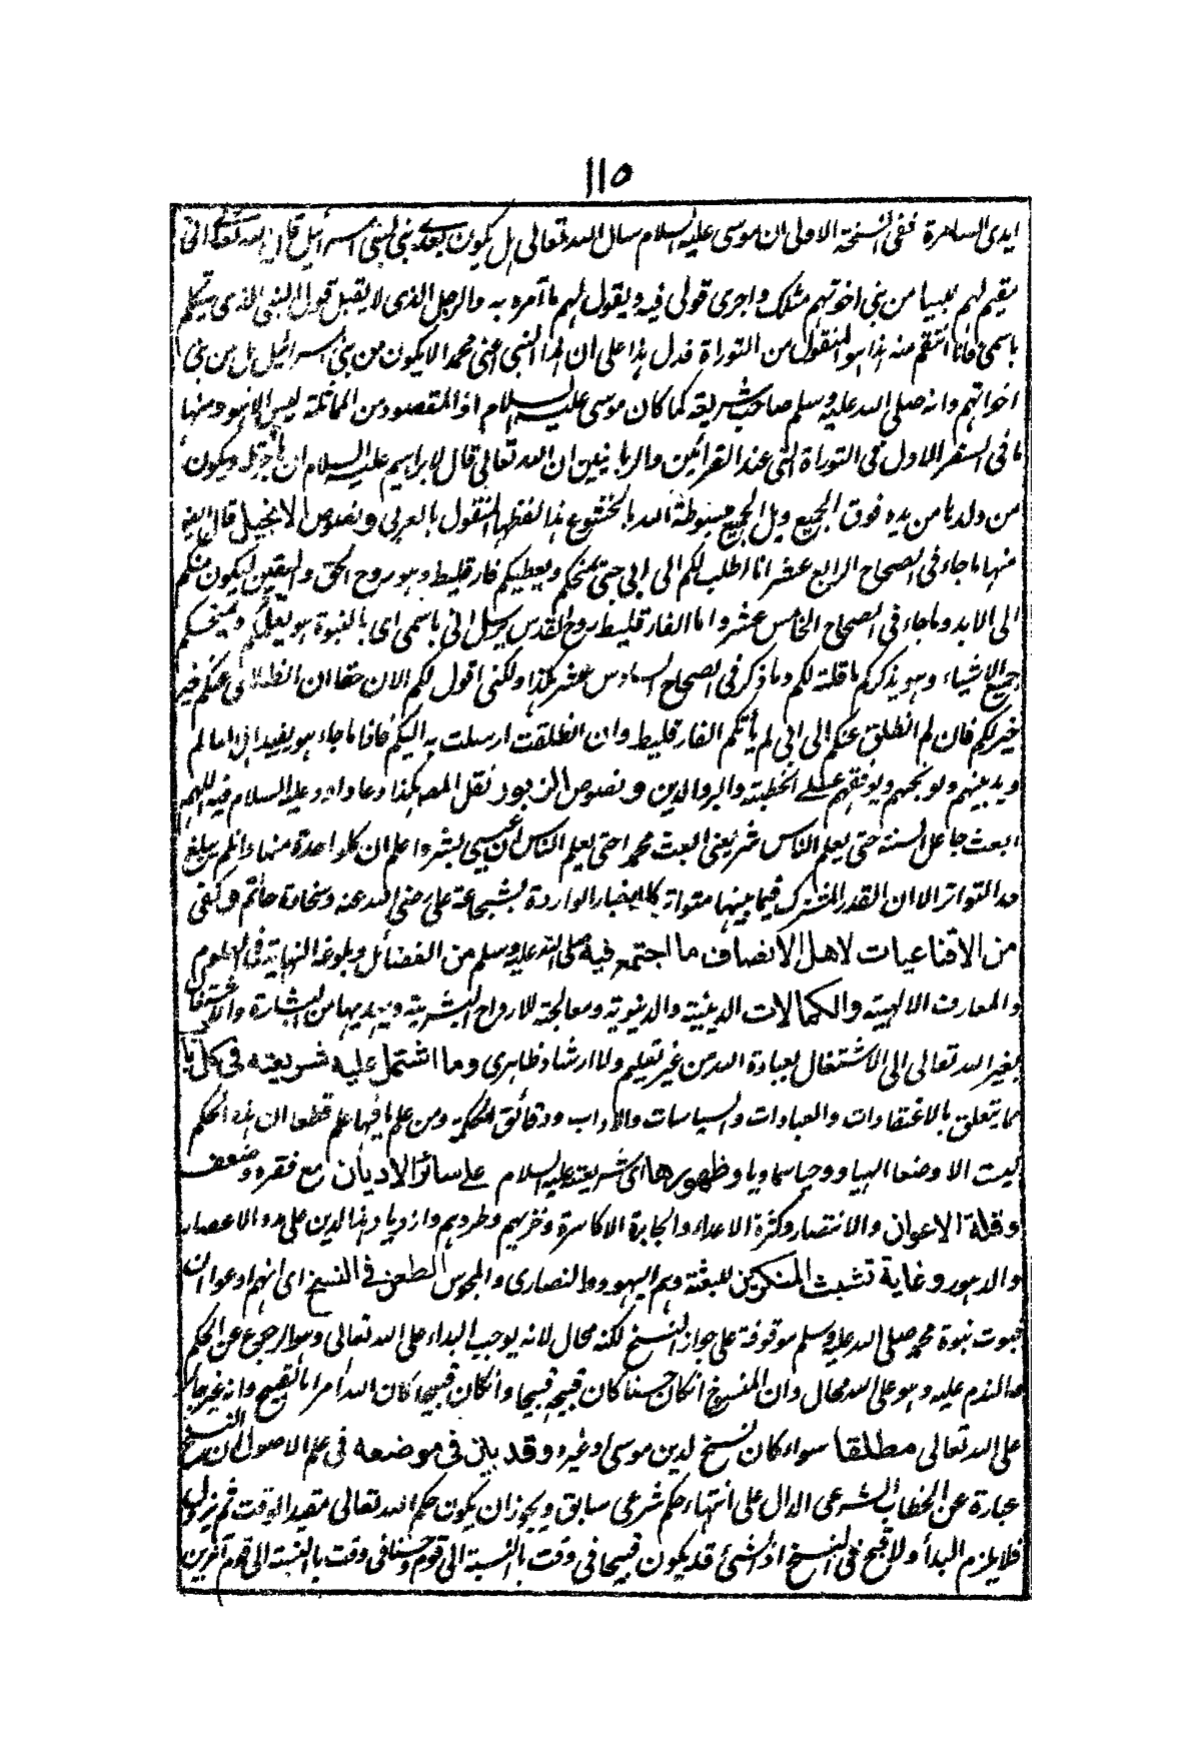 ١١٥
ايدى السامرة ففى النسخة الاولى ان موسى عليه السلام سال الله تعالى هل يكون بعدى نبى لبنى اسرائيل قال الله تعالى انى
مقيم لهم نبيا من بنى اخوتهم مثلك واجرى قولى فيه ويقول لهم ما آمره به والرجل الذى لا يقبل قول النبى الذى يتكلم
باسمى فانا انتقم منه هذا هو المنقول من التوراة فدل هذا على ان هذا النبى اعنى محمد الا يكون من بنى اسرائيل بل من بنى
اخوانهم وانه صلى الله عليه وسلم صاحب شريعة كما كان موسى عليه السلام اذ المقصود من المماثلة ليس الا هو ومنها
ما فى السفر الاول من التوراة التى عند القرائين والربانيين ان الله تعالى قال لابراهيم عليه السلام ان هاجر تلد ويكون
من ولدها من يده فوق الجميع ويد الجميع مبسوطة اليه بالخشوع هذا لفظها المنقول بالعربى ونصوص الانجيل قال فيه
منها ما جاء فى الصحاح الرابع عشر انا اطلب لكم الى ابى حتى يمنحكم ويعطيكم فارقليط وهو روح الحق واليقين ليكون معكم
الى الابد وما جاء فى الصحاح الخامس عشر واما الفارقليط روح القدس يرسل ابى باسمى اى بالنبوة هو يعلمكم ويمنحكم
جميع الاشياء وهو يذكركم ما قلته لكم وما ذكر فى الصحاح السادس عشر هكذا ولكنى اقول لكم الان حقا ان انطلاقى عنكم خير
خير لكم فان لم انطلق عنكم الى ابى لم يأتكم الفارقليط وان انطلقت ارسلت به اليكم فاذا ما جاء هو يفيد اهل العالم
ويدينهم ويوبخهم ويوقفهم على الخطيئة والبر والدين ونصوص الزبور نقل المص هكذا دعا داود عليه السلام فيه اللهم
ابعث جاعل السنة حتى يعلم الناس انه بشر يعنى ابعث محمدا حتى يعلم الناس ان عيسى بشر واعلم ان كل واحدة منها وان لم يبلغ
حد التواتر الا ان القدر المشترك فيما بينها متواتر كالاخبار الواردة بشجاعة على رضى الله عنه وسخاوة حاتم وكفى
من الاقناعيات لاهل الانصاف ما اجتمع فيه صلى الله عليه وسلم من الفضائل وبلوغه النهاية فى العلوم
والمعارف الالهية والكمالات الدينية والدنيوية ومعالجة للارواح البشرية من
بغير الله تعالى الى الاشتغال بعبادة الله من غير تعليم ولا ارشاد ظاهرى وما اشتمل عليه شريعته فى كل باب
مما يتعلق بالاعتقادات والعبادات والسياسات والاداب ودقائق الحكم ومن علم ما فيها علم قطعا ان هذه الحكم
ليست الا وضعا الهيا ووحيا سماويا وظهورها اى شريعته عليه السلام على سائر الاديان مع فقره وضعف
وقلة الاعوان والانتصار وكثرة الاعداء والجبابرة الاكاسرة وطردهم وازدياد هذا الدين على مر الاعصار
والدهور وغاية تشبث المنكرين للبعثة وهم اليهود والنصارى والمجوس الطعن فى النسخ اى انهم ادعوا ان
ثبوت نبوة محمد صلى الله عليه وسلم موقوفة على جواز النسخ لكنه محال لانه يوجب البداء على الله تعالى وهو الرجوع عن الحكم
والندم عليه وهو على الله محال وان المنسوخ ان كان حسنا كان قبيحه قبيحا وان كان قبيحا كان الله آمرا بالقبيح وانه غير جائز
على الله تعالى مطلقا سواء كان نسخ لدين موسى او غيره وقد بان فى موضعه فى علم الاصول ان النسخ
عبارة عن الخطاب الشرعى الدال على انتهاء حكم شرعى سابق ويجوز ان يكون حكم الله تعالى مقيدا لوقت ثم يزول
فلا يلزم البدأ ولا قبح فى النسخ اذ الشئ قد يكون قبيحا فى وقت بالنسبة الى قوم وحسنا فى وقت بالنسبة الى قوم آخرين